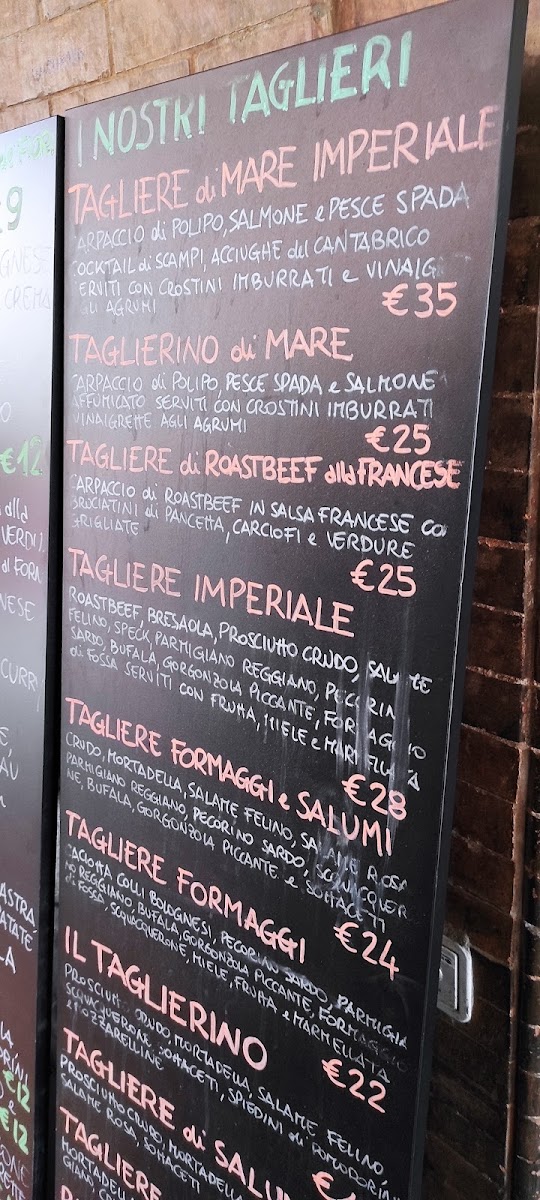 I NOSTRI TAGLIERI
TAGLIERE di MARE IMPERIALE
ARPACCIO di POLIPO, SALMONE e PESCE SPADA
OCKTAIL di SCAMPI, ACCIUGHE del CANTABRICO
ERVITI CON CROSTINI IMBURRATI e VINAIG
GLI AGRUMI
€35
TAGLIERINO di MARE
CARPACCIO di POLIPO, PESCE SPADA e SALMONE
AFFUMICATO SERVITI CON CROSTINI IMBURRATI
VINAIGRETTE AGLI AGRUMI
€25
TAGLIERE di ROASTBEEF alla FRANCESE
CARPACCIO di ROASTBEEF IN SALSA FRANCESE CO
BRUCIATINI di PANCETTA, CARCIOFI e VERDURE
GRIGLIATE
€25
TAGLIERE IMPERIALE
ROASTBEEF, BRESAOLA, PROSCIUTTO CRUDO, SALAME
FELINO, SPECK, PARMIGIANO REGGIANO, PECORIN
SARDO, BUFALA, GORGONZOLA PICCANTE, FORMAGGIO
di FOSSA SERVITI CON FRUTTA, MIELE e MARMELLATA
€28
TAGLIERE FORMAGGI e SALUMI
CRUDO, MORTADELLA, SALAME FELINO, SALAME ROSA
PARMIGIANO REGGIANO, PECORINO SARDO, SQUACQUER
NE, BUFALA, GORGONZOLA PICCANTE e SOTTACETI
€24
TAGLIERE FORMAGGI
CACIOTTA COLLI BOLOGNESI, PECORINO SARDO, PARMIGIA
NO REGGIANO, BUFALA, GORGONZOLA PICCANTE, FORMAGGIO
di FOSSA, SQUACQUERONE, MIELE, FRUTTA e MARMELLATA
€22
IL TAGLIERINO
PROSCIUTTO CRUDO, MORTADELLA, SALAME FELINO,
SQUACQUERONE, SOTTACETI, SPIEDINI di POMODORINI
e MOZZARELLINE
TAGLIERE di SALU
PROSCIUTTO CRUDO, MORTADELLA
SALAME ROSA, SOTTACETI
TAGLIERE
MORTADELLA
GIANO, CO
9
GNESE
CREMA
€12
alla
VERDI,
al FORN
NESE
CURRY
ASTRA,
PATATE
€12
€12